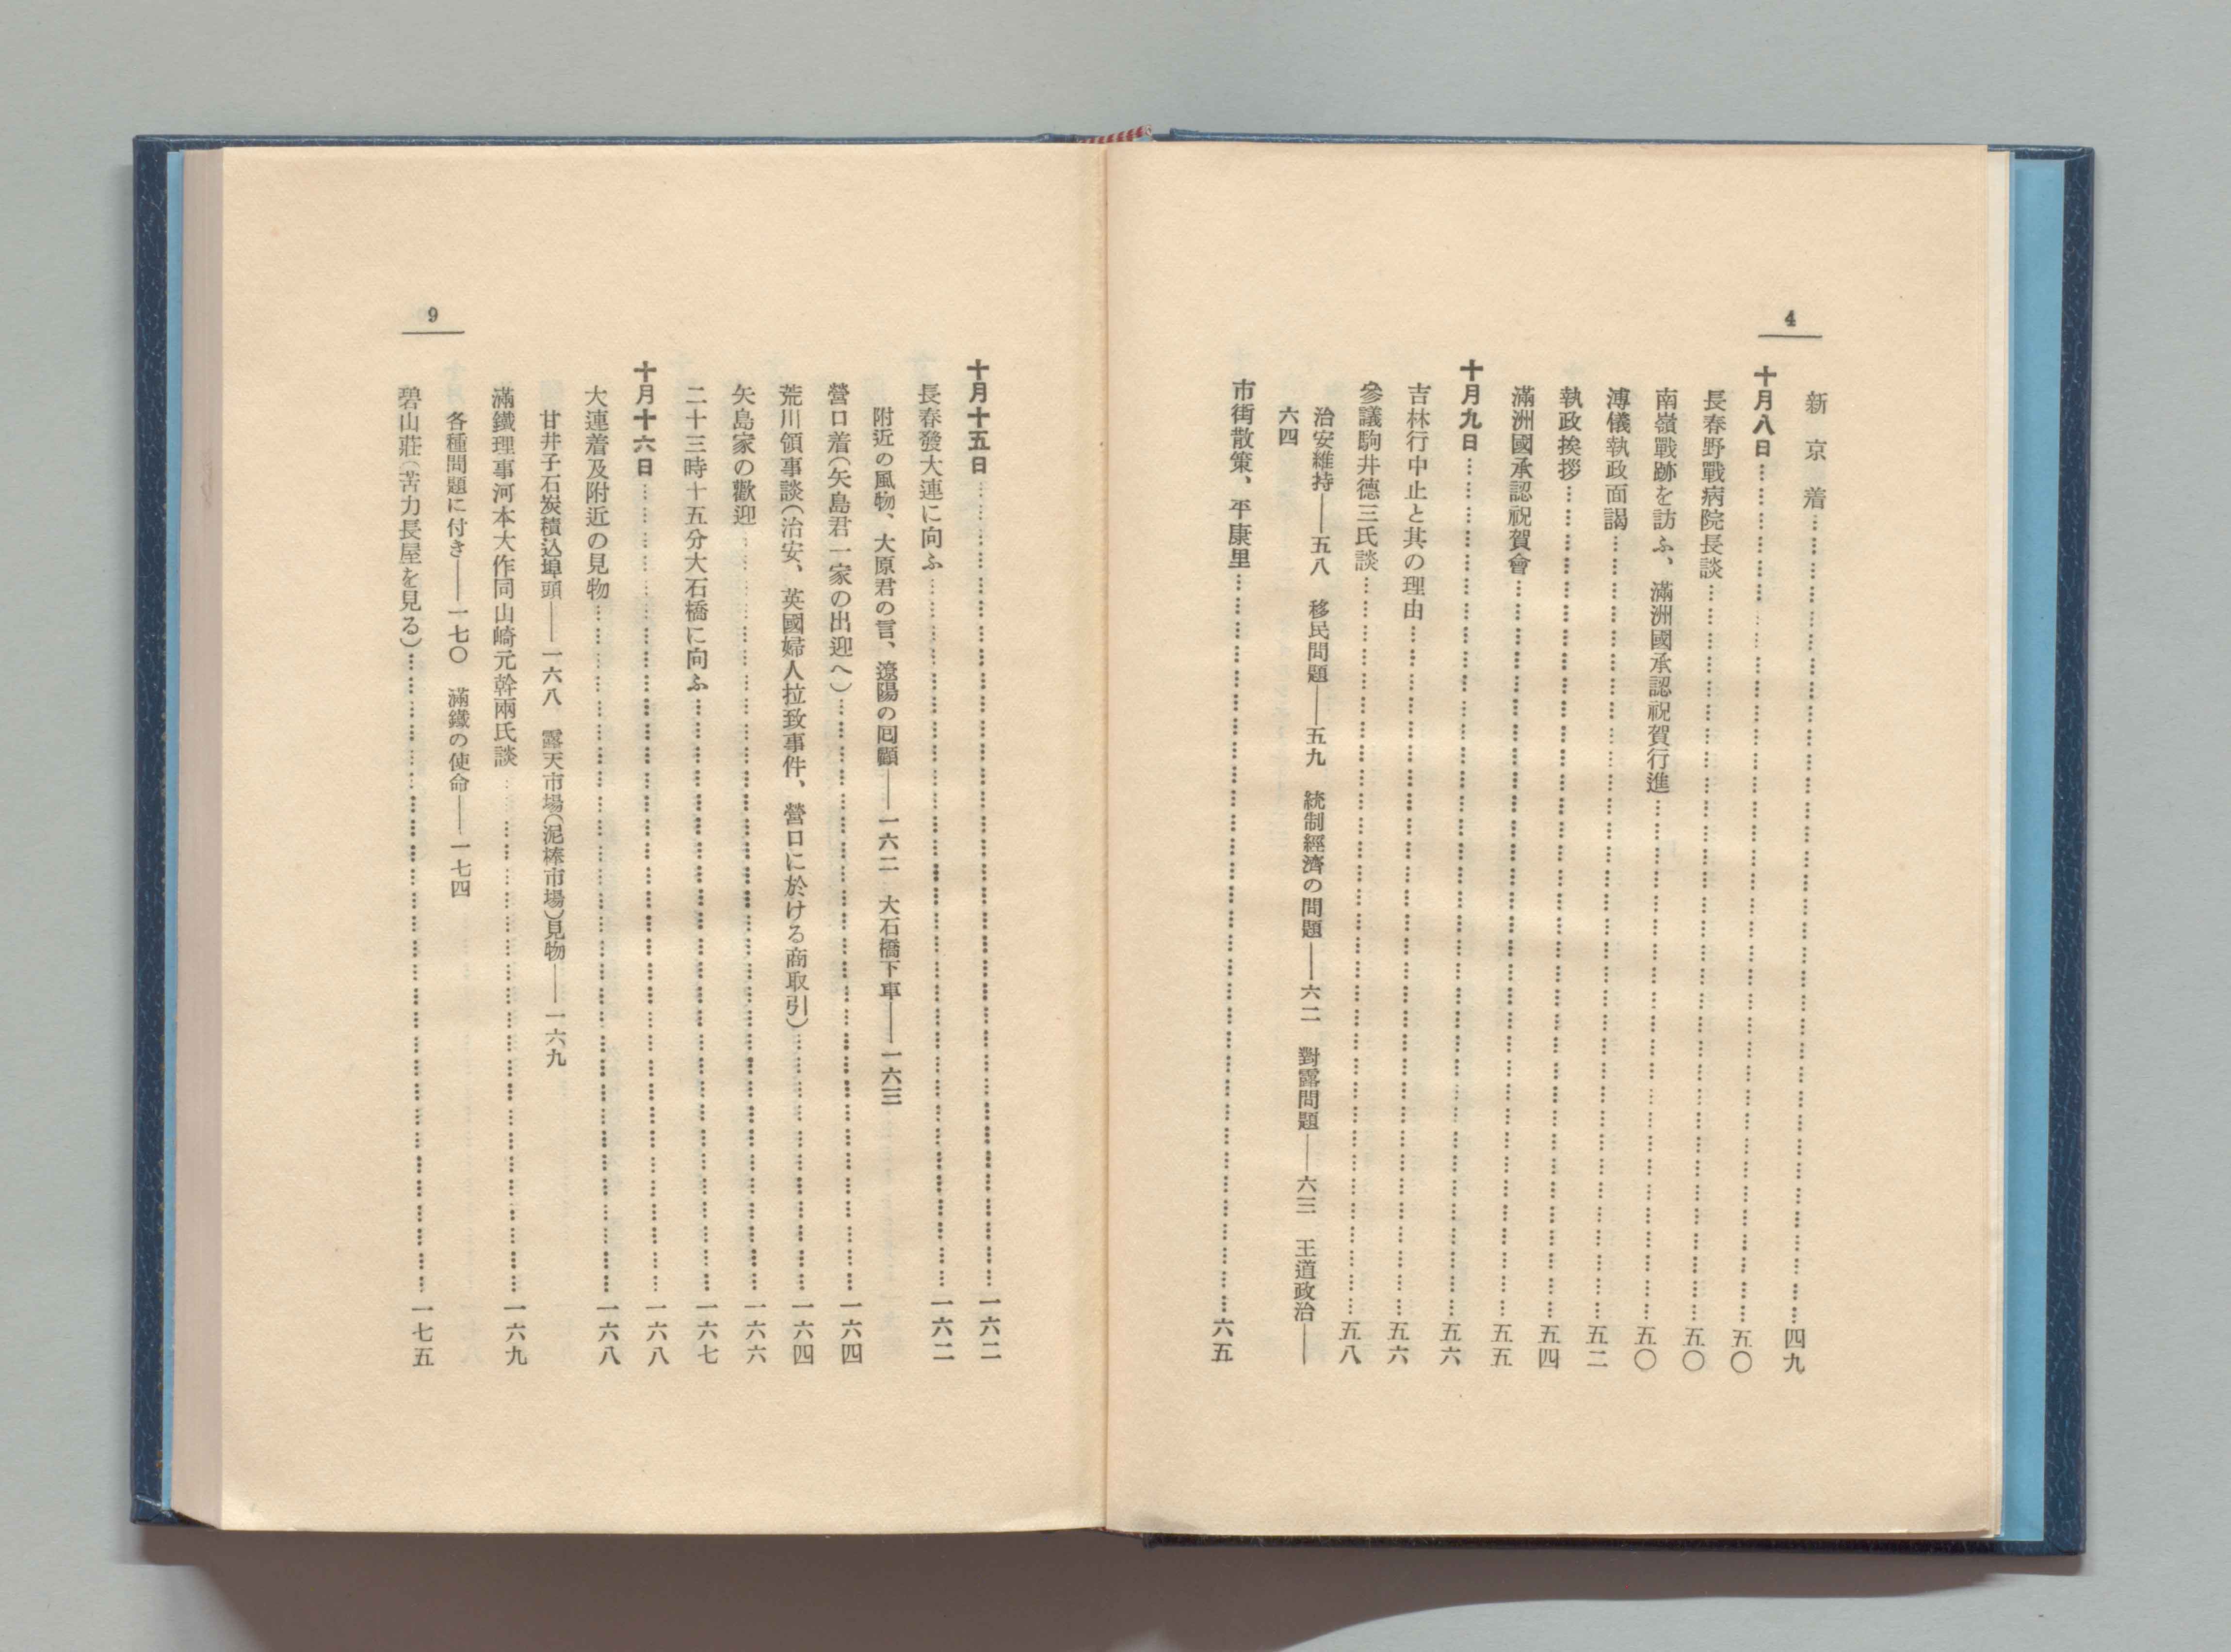 4
新京着……四九
十月八日……五〇
長春野戰病院長談……五〇
南嶺戰跡を訪ふ、滿洲國承認祝賀行進……五〇
溥儀執政面謁……五二
執政挨拶……五四
滿洲國承認祝賀會……五五
十月九日……五六
吉林行中止と其の理由……五六
參議駒井德三氏談……五八
治安維持——五八 移民問題——五九 統制經濟の問題——六二 對露問題——六三 王道政治——
六四
市街散策、平康里……六五
9
十月十五日……一六二
長春發大連に向ふ……一六二
附近の風物、大原君の言、遼陽の回顧——一六二 大石橋下車——一六三
營口着(矢島君一家の出迎へ)……一六四
荒川領事談(治安、英國婦人拉致事件、營口に於ける商取引)……一六四
矢島家の歡迎……一六六
二十三時十五分大石橋に向ふ……一六七
十月十六日……一六八
大連着及附近の見物……一六八
甘井子石炭積込埠頭——一六八 露天市場(泥棒市場)見物——一六九
滿鐵理事河本大作同山崎元幹兩氏談……一六九
各種問題に付き——一七〇 滿鐵の使命——一七四
碧山莊(苦力長屋を見る)……一七五